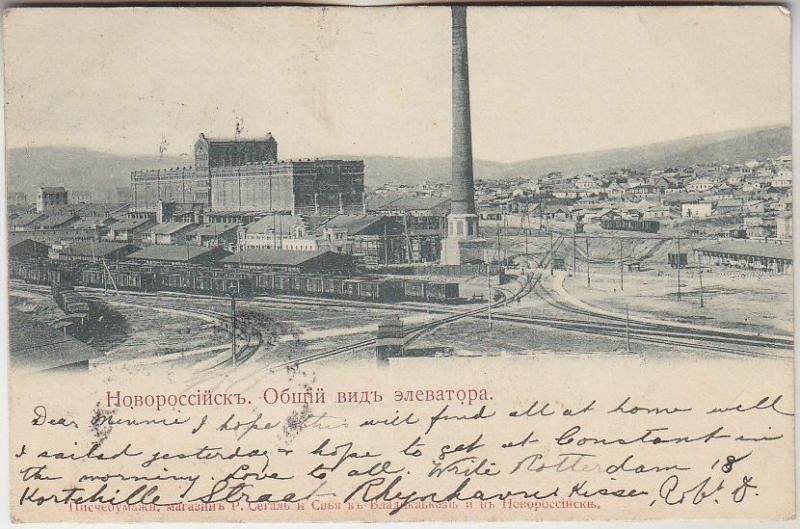 Новороссійскъ. Общій видъ элеватора.
Dear Minnie I hope this will find all at home well
I sailed yesterday & hope to get at Constant in
the morning Love to all. Write Rotterdam 18
Kortehille Straat Rhynhavne Kisses, Robt D.
Писчебумажн. магазинъ Р. Сегаль и С-вья въ Владикавказѣ и въ Новороссійскѣ.